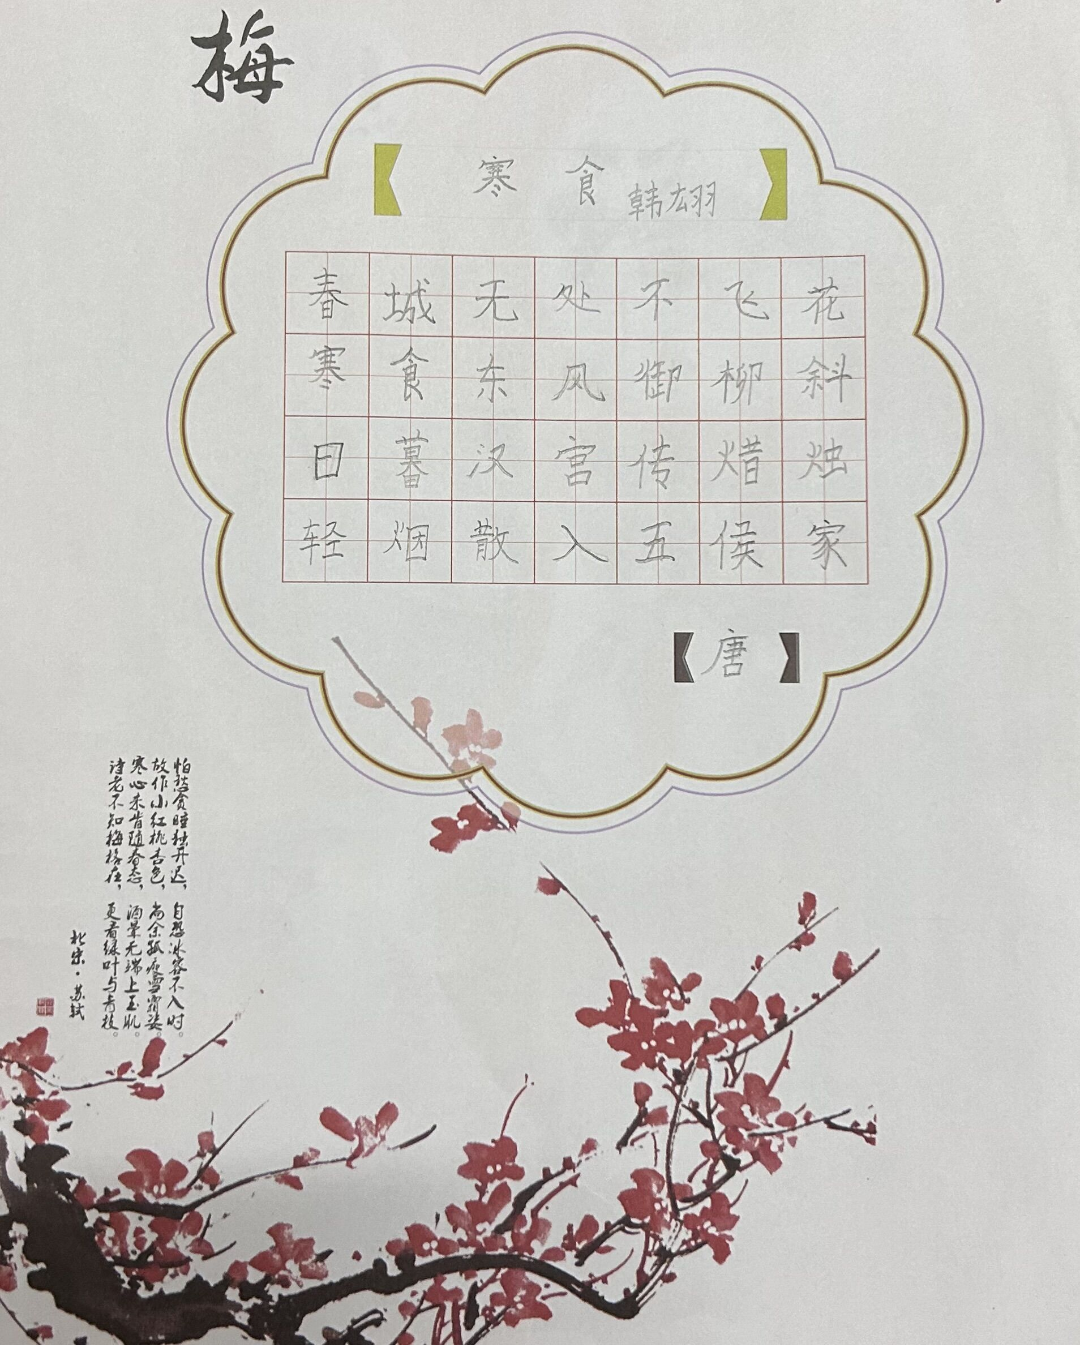 梅
寒食 韩翃
春城无处不飞花
寒食东风御柳斜
日暮汉宫传焟烛
轻烟散入五侯家
【唐】
怕愁贪睡独开迟，自恐冰容不入时。
故作小红桃杏色，尚余孤瘦雪霜姿。
寒心未肯随春态，酒晕无端上玉肌。
诗老不知梅格在，更看绿叶与青枝。
北宋·苏轼